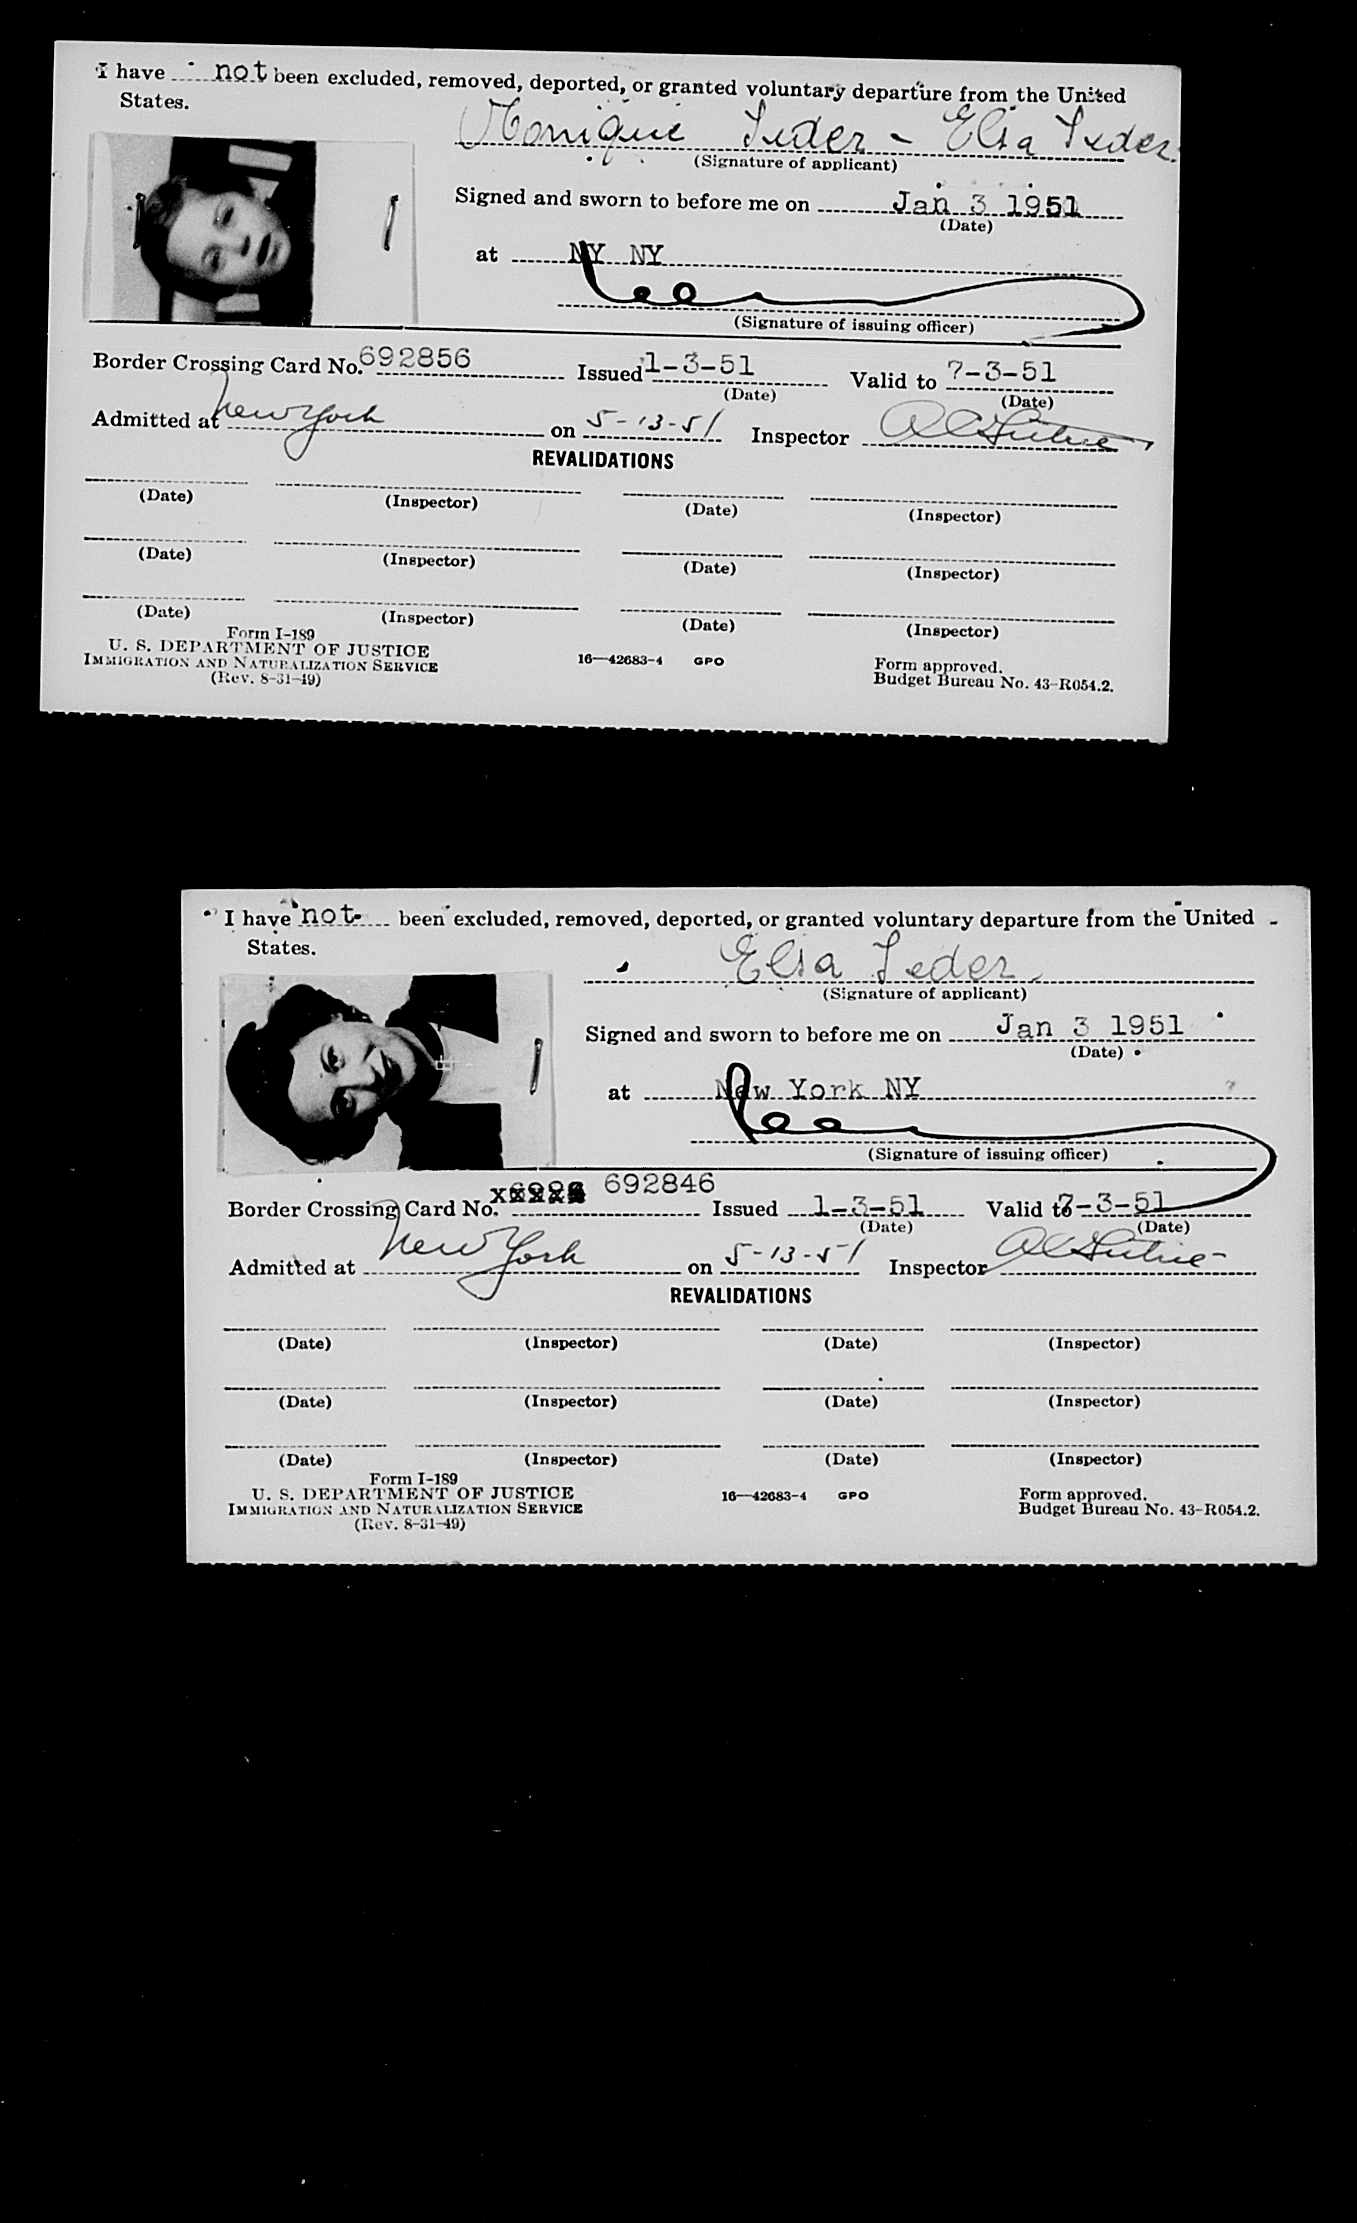 I have not been excluded, removed, deported, or granted voluntary departure from the United
States.
Monique Feder - Elsa Feder
(Signature of applicant)
Signed and sworn to before me on Jan 3 1951
(Date)
at NY NY
(Signature of issuing officer)
Border Crossing Card No. 692856 Issued 1-3-51 Valid to 7-3-51
(Date) (Date)
Admitted at New York on 5-13-51 Inspector
REVALIDATIONS
(Date) (Inspector) (Date) (Inspector)
(Date) (Inspector) (Date) (Inspector)
(Date) (Inspector) (Date) (Inspector)
Form I-189
U. S. DEPARTMENT OF JUSTICE
IMMIGRATION AND NATURALIZATION SERVICE
(Rev. 8-31-49)
16—42683-4 GPO
Form approved.
Budget Bureau No. 43-R054.2.
I have not been excluded, removed, deported, or granted voluntary departure from the United
States.
Elsa Feder
(Signature of applicant)
Signed and sworn to before me on Jan 3 1951
(Date)
at New York NY
(Signature of issuing officer)
Border Crossing Card No. 692846 Issued 1-3-51 Valid to 7-3-51
(Date) (Date)
Admitted at New York on 5-13-51 Inspector
REVALIDATIONS
(Date) (Inspector) (Date) (Inspector)
(Date) (Inspector) (Date) (Inspector)
(Date) (Inspector) (Date) (Inspector)
Form I-189
U. S. DEPARTMENT OF JUSTICE
IMMIGRATION AND NATURALIZATION SERVICE
(Rev. 8-31-49)
16—42683-4 GPO
Form approved.
Budget Bureau No. 43-R054.2.